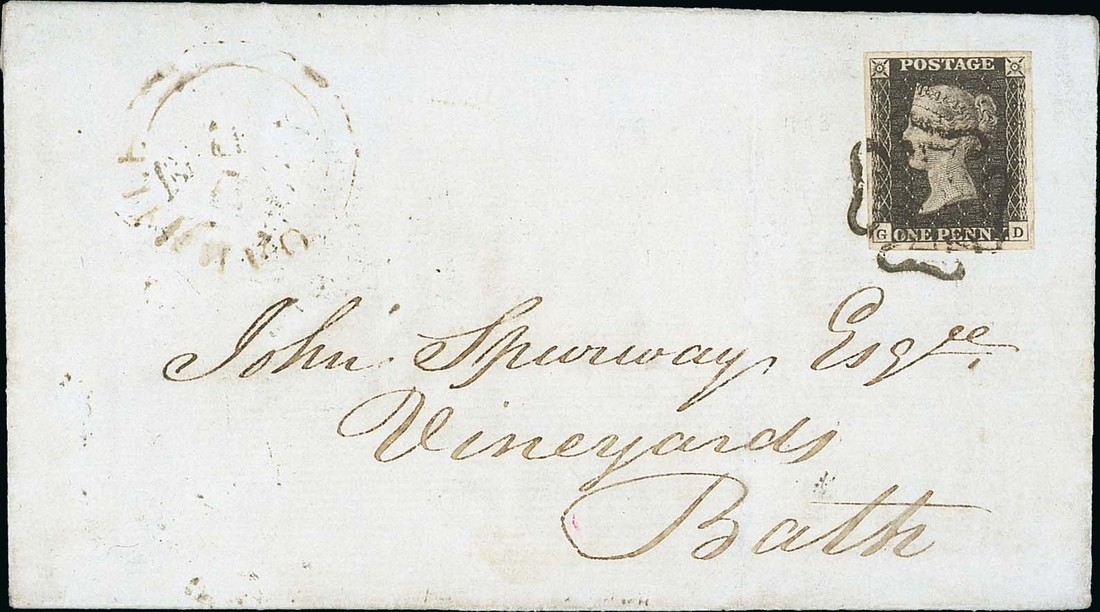 POSTAGE
G ONE PENNY D
John Spurway Esqre,
Vineyards
Bath